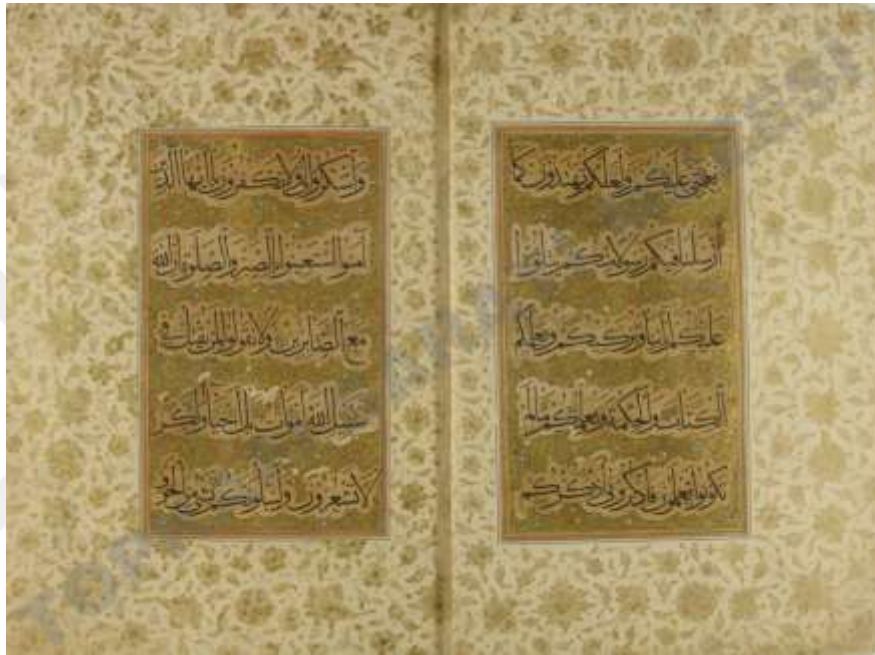 نعمتى عليكم ولعلكم تهتدون كما
ارسلنا فيكم رسولا منكم يتلوا
عليكم اياتنا ويزكيكم ويعلمكم
الكتاب والحكمة ويعلمكم مالم
تكونوا تعلمون فاذكرونى اذكركم
واشكروا لى ولا تكفرون يا ايها الذين
آمنوا استعينوا بالصبر والصلوة ان الله
مع الصابرين ولا تقولوا لمن يقتل فى
سبيل الله اموات بل احياء ولكن
لا تشعرون ولنبلونكم بشئ من الخوف